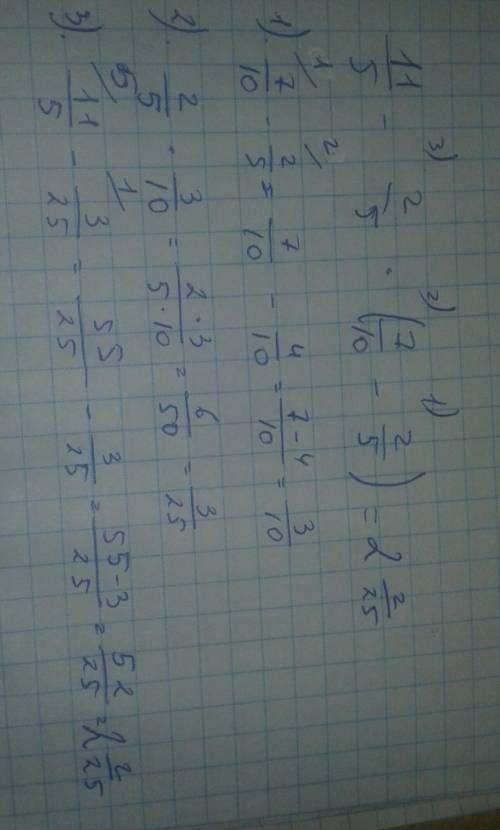 3) 2) 1)
11/5 - 2/5 · (7/10 - 2/5) = 2 2/25
1) 7/10 - 2/5 = 7/10 - 4/10 = 7-4/10 = 3/10
2) 2/5 · 3/10 = 2·3/5·10 = 6/50 = 3/25
3) 11/5 - 3/25 = 55/25 - 3/25 = 55-3/25 = 52/25 = 2 2/25